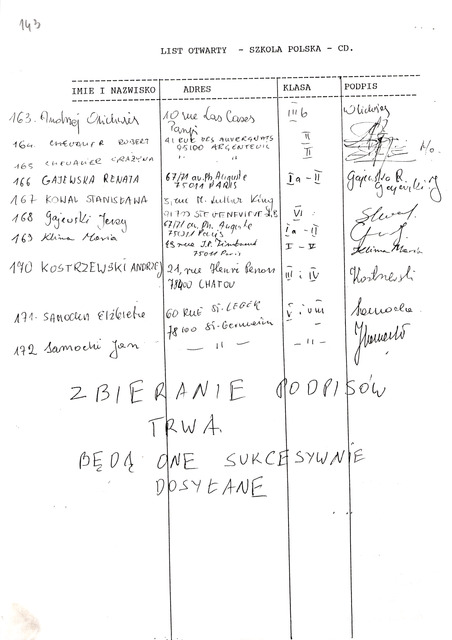 143
LIST OTWARTY - SZKOLA POLSKA - CD.
IMIE I NAZWISKO ADRES KLASA PODPIS
163. Andrzej 10 rue Las Cases III b
Paryż
164. CHEVALIER ROBERT 41 RUE DES AUVERGNATS II
95100 ARGENTEUIL
165 CHEVALIER GRAŻYNA " " II
166 GAJEWSKA RENATA 67/71 av. Ph. Auguste Ia - II Gajewska R.
75011 PARIS
167 KOWAL STANISŁAWA rue M. Luther King
91700 STE GENEVIEVE VI
168 Gajewski Jerzy 67/71 av. Ph. Auguste Ia - II
75011 Paris
169 Klima Maria I - V Klima Maria
75011 Paris
170 KOSTRZEWSKI ANDRZEJ 21, rue Henri III i IV
78400 CHATOU
171. SAMOCKA Elżbieta 60 RUE St. LEGER V i VIII Samocka
78100 St-Germain
172 Samocki Jan — " — — " —
ZBIERANIE PODPISÓW
TRWA.
BĘDĄ ONE SUKCESYWNIE
DOSYŁANE